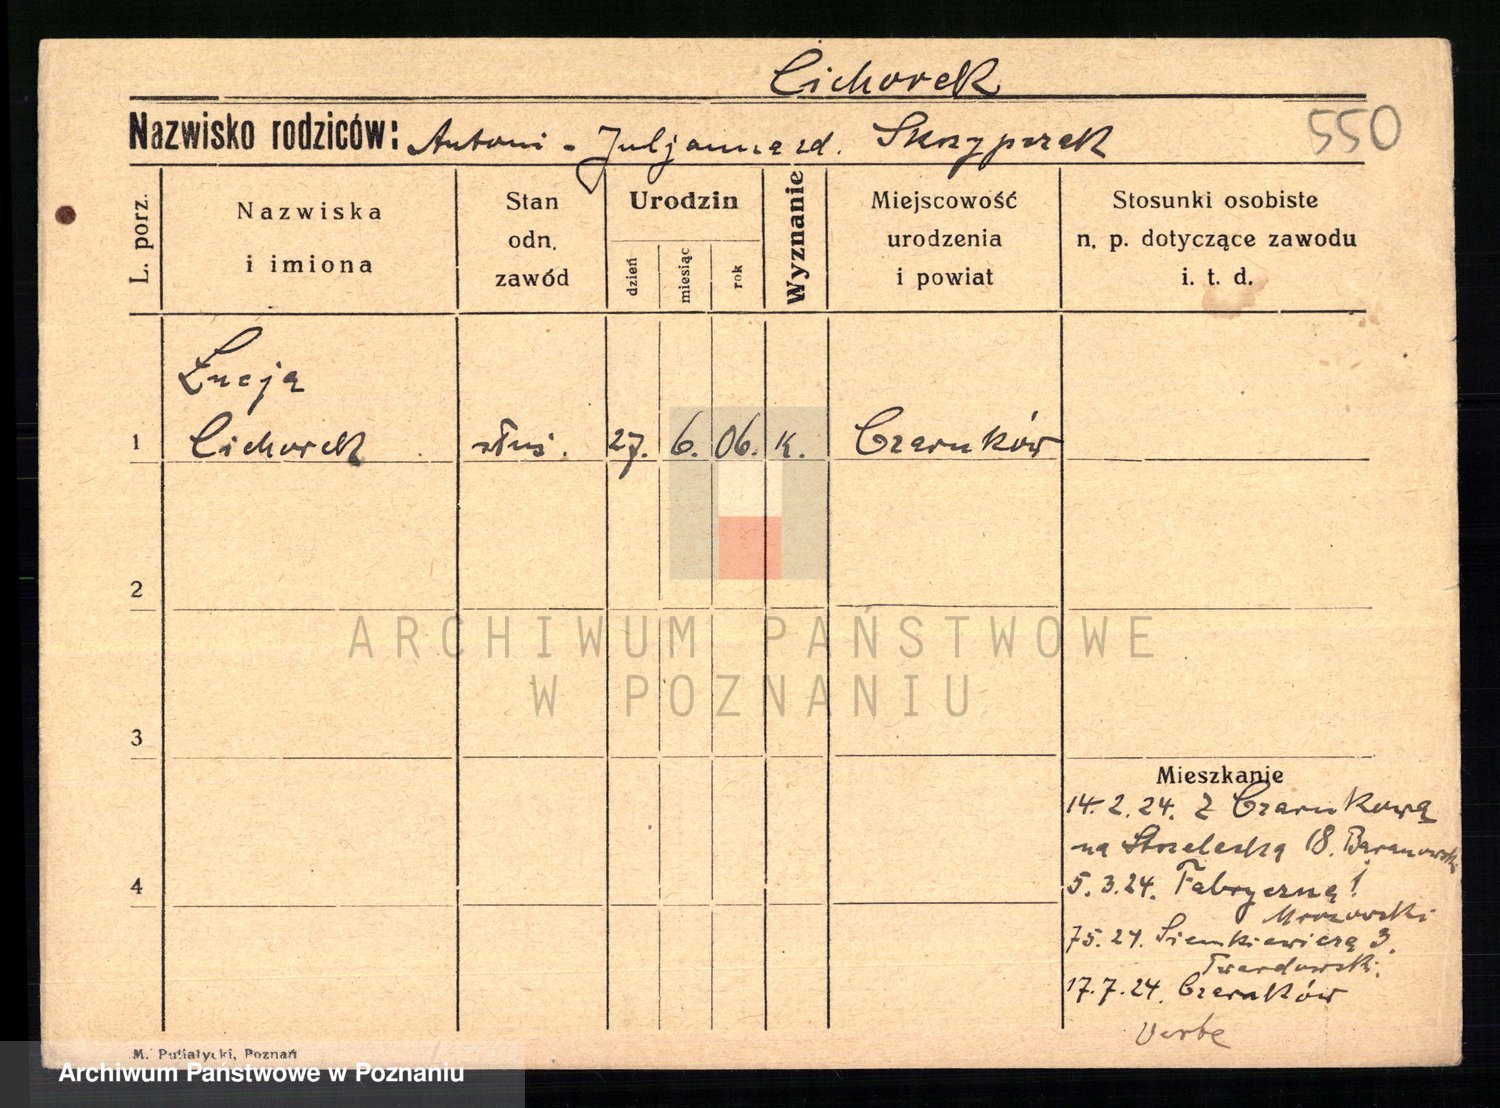 Cichorek
Nazwisko rodziców: Antoni - Juljanna zd. Skrzypczak
550
L. porz.
Nazwiska
i imiona
Stan
odn.
zawód
Urodzin
dzień
miesiąc
rok
Wyznanie
Miejscowość
urodzenia
i powiat
Stosunki osobiste
n. p. dotyczące zawodu
i. t. d.
Łucja
1 Cichorek służ. 27. 6. 06. k. Czarnków
2
3
4
ARCHIWUM PAŃSTWOWE
W POZNANIU
Mieszkanie
14.2.24. z Czarnkowa
na Strzelecką 18. Baranowski
5.3.24. Fabryczna 1
Mrozowski
7.5.24. Sienkiewicza 3.
Twardowski.
17.7.24. Czarnków
M. Putiatycki, Poznań
Archiwum Państwowe w Poznaniu